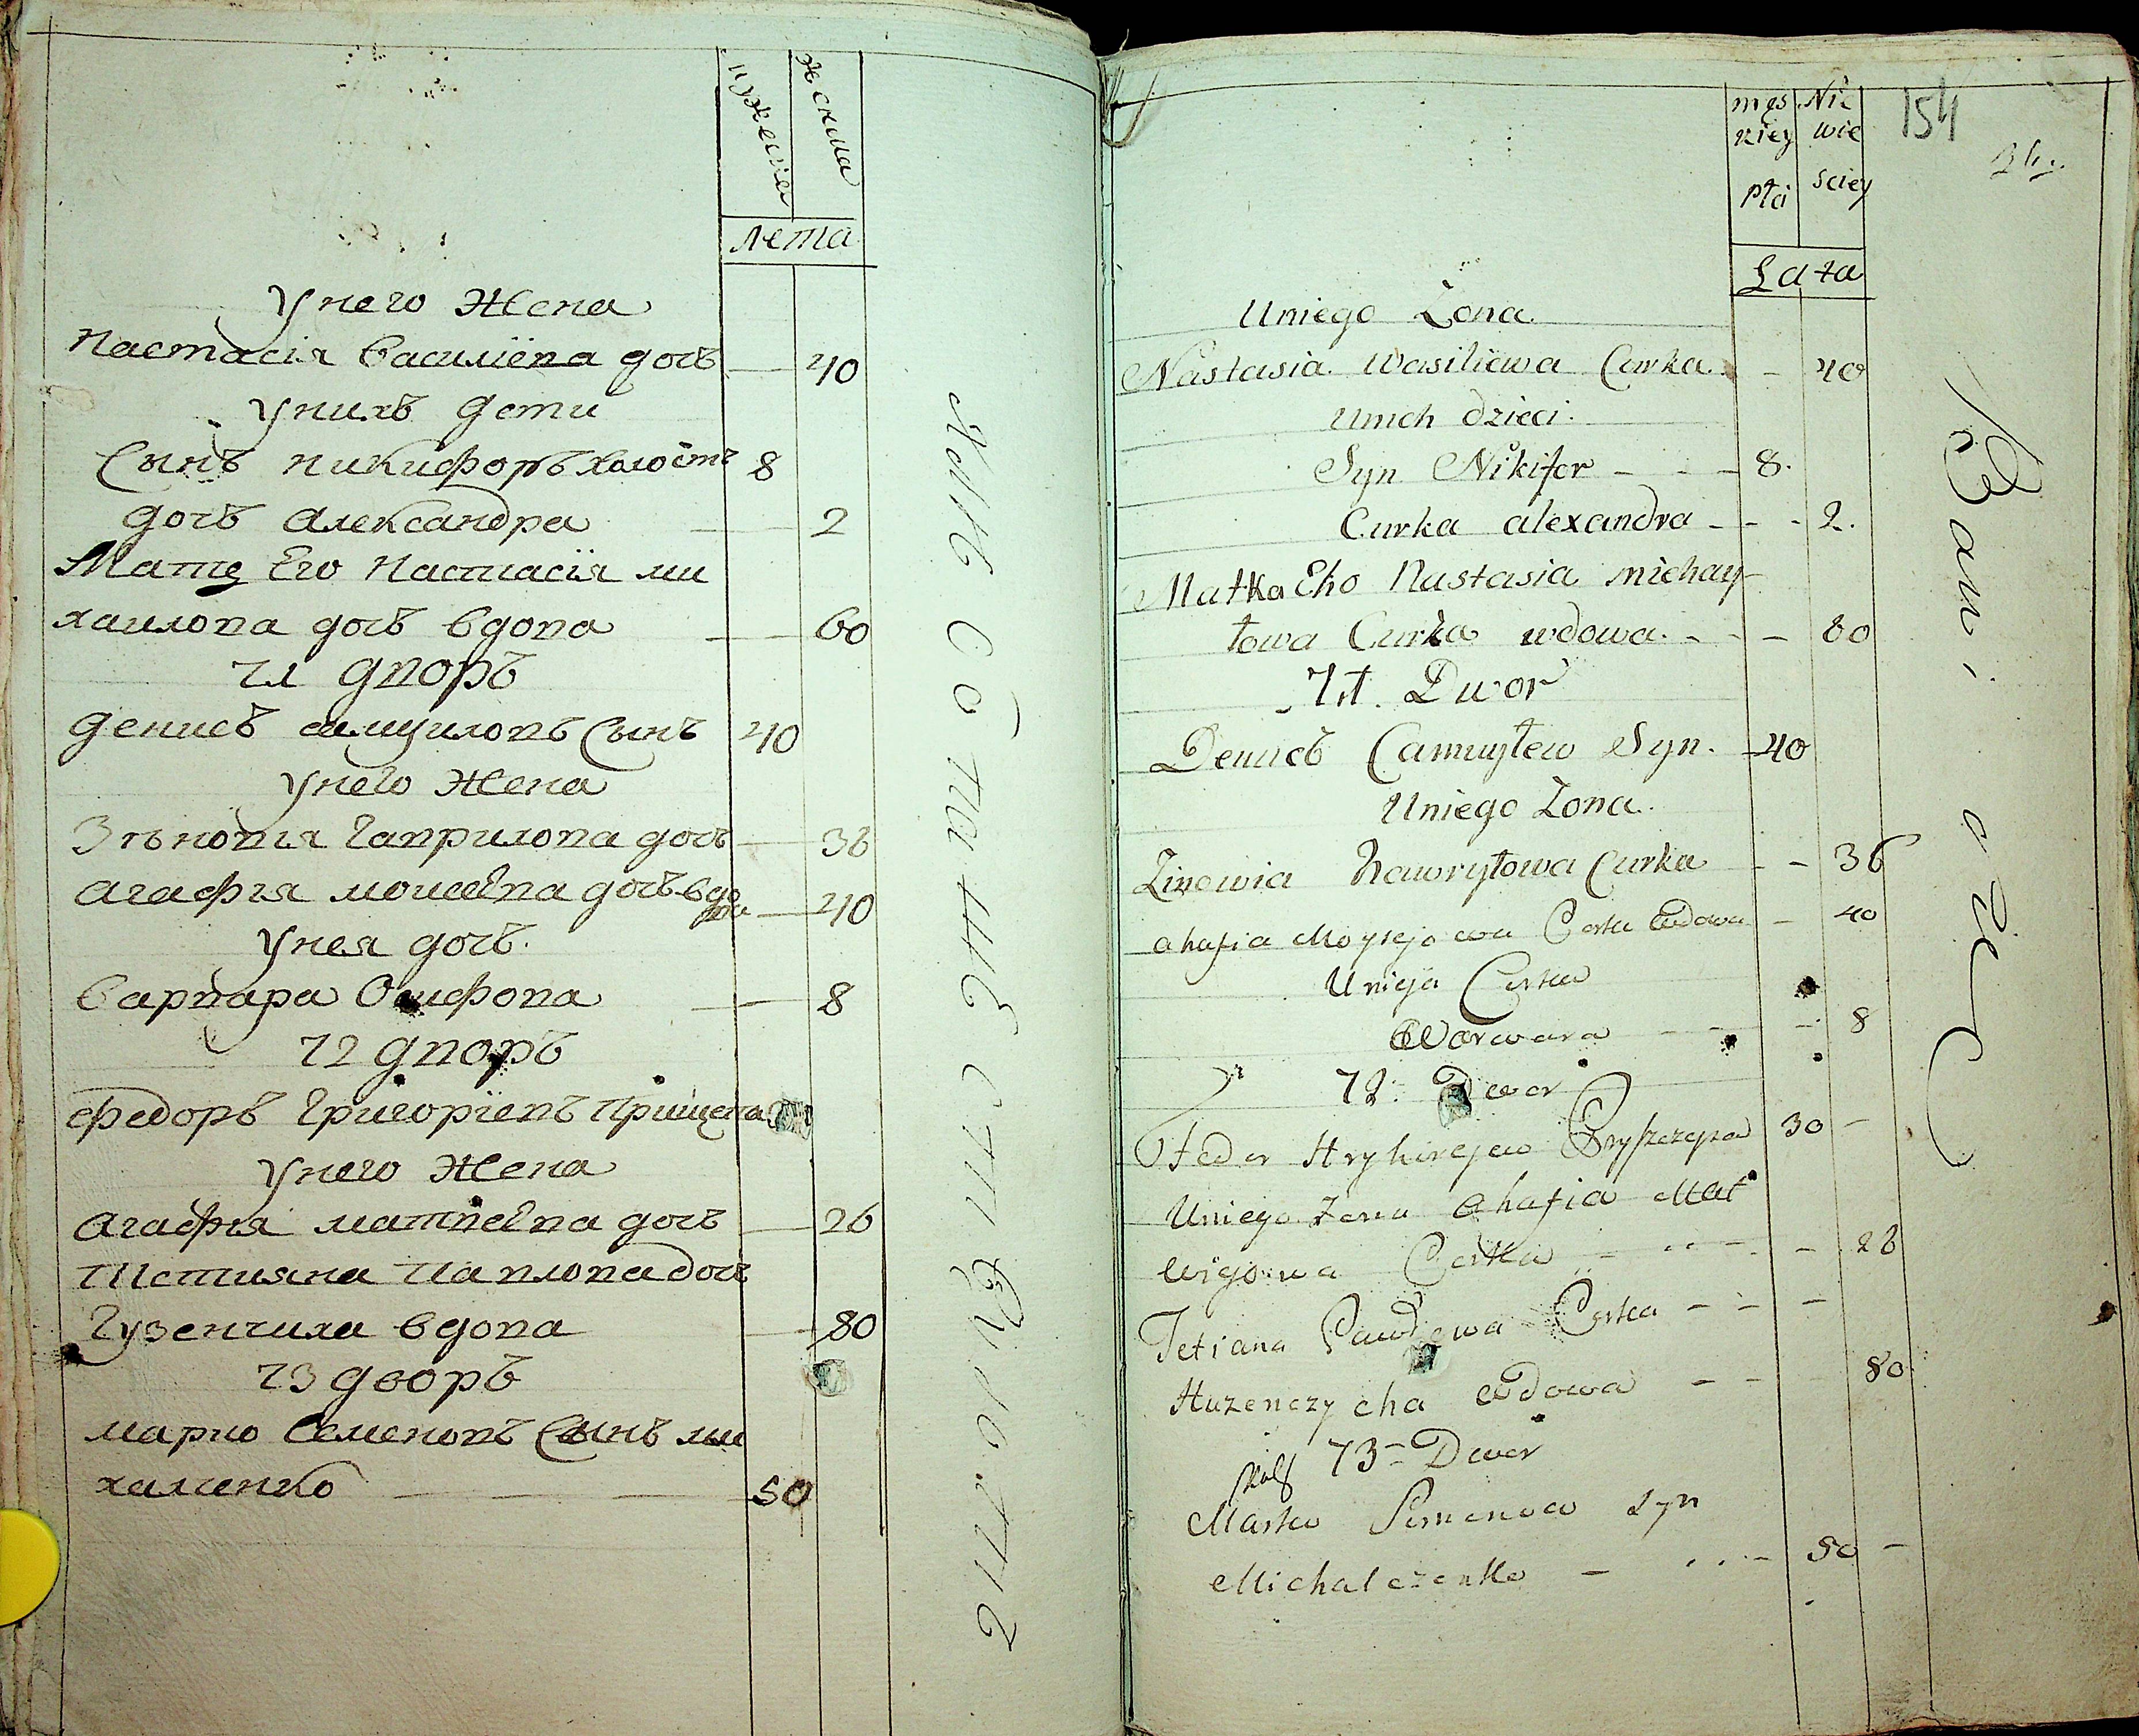 мужеска
женска
лета
У него Жена
Настасія Василіева дочь 40
У нихъ дети
Сынъ Никифоръ холостъ 8
дочь Александра 2
Мать Его Настасія ми
хаилова дочь вдова 60
71 дворъ
Денисъ самуиловъ Сынъ 40
У него Жена
Зѣновия Гаврилова дочь 36
Агафия моисеева дочь вдова 40
У нея дочь
Варвара 8
72 дворъ
Федоръ Григоріевъ Прищепа
У него Жена
Агафия матвеева дочь 26
Тетияна Павлова дочь
Гузенчиха вдова 80
73 дворъ
Марко Семеновъ Сынъ ми
халченко 50
męs
kiey
płci
Nie
wie
sciey
Lata
154
Uniego Żona
Nastasia Wasiliewa Curka - 40
Unich dzieci
Syn Nikifor - - - 8.
Curka alexandra - - - 2.
Matka Eho Nastasia michay-
łowa Curka wdowa - - - 60
71. Dwor
Denisъ Samuyłew Syn. - 40
Uniego Żona
Zinowia Hawryłowa Curka - - 36
ahafia Moysejowa Corka Wdowa - 40
Unieja Corka
Warwara - - - 8
72 - Dwor
Fedor Hryhorejew Pryszczepa 30 -
Uniego Zona Ahafia Mat
wijowa Corka - - - 26
Tetiana Pawłowa Corka - - -
Huzenczycha Wdowa - - 80
73 - Dwor
Marko Semenow Syn
Michalczenko - - 50 -